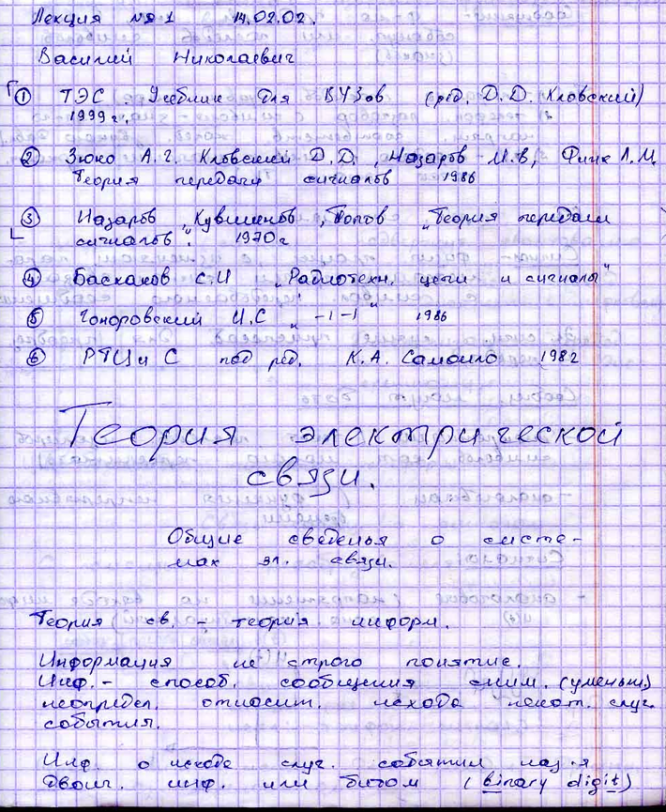 Лекция №1 14.02.02.
Василий Николаевич
① ТЭС. Учебник для ВУЗов (ред. Д.Д. Кловский)
1999 г.,
② Зюко А.Г. Кловский Д.Д., Назаров М.В, Финк Л.М.
Теория передачи сигналов 1986
③ Назаров, Кувшинов, Попов „Теория передачи
сигналов". 1970г
④ Баскаков С.И „Радиотехн. цепи и сигналы"
⑤ Гоноровский И.С „ -|-| " 1986
⑥ РТЦ и С под ред. К.А. Самойло 1982
Теория электрической
связи.
Общие сведенья о систе-
мах эл. связи.
Теория св. - теория информ.
Информация не строго понятие.
Инф. - способ. сообщения сним. (уменьш)
неопредел. относит. исхода некот. случ.
события.
Инф. о исходе случ. события наз-я
двоич. инф. или битом (binary digit)